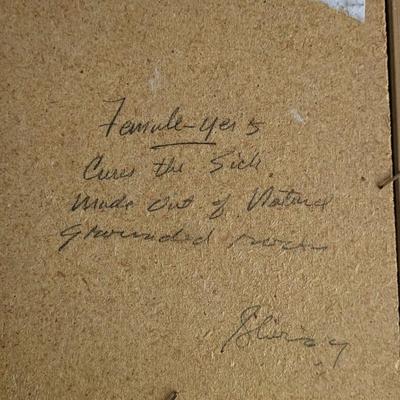 Female-yei's
Cures the Sick
Made Out of Natural
Grounded rocks